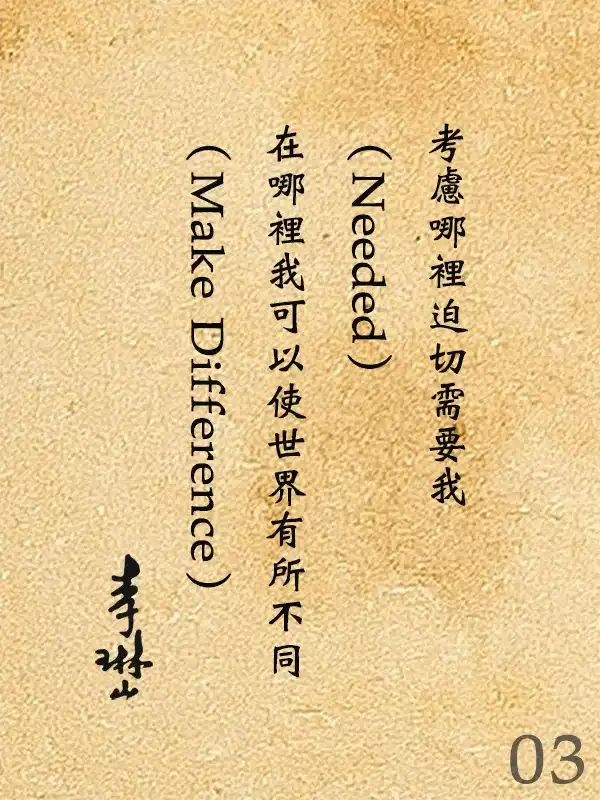 考慮哪裡迫切需要我
（Needed）
在哪裡我可以使世界有所不同
（Make Difference）
李琳山
03